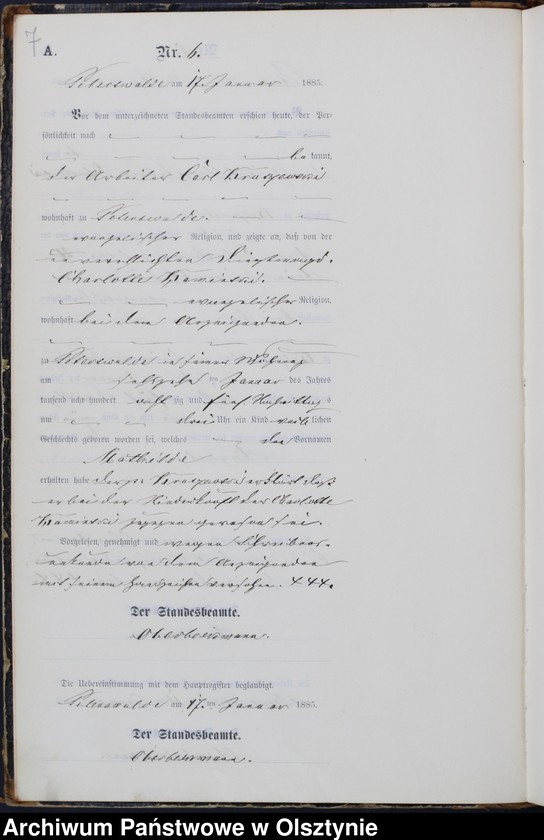 7
A. Nr. 6.
Peterswalde am 17. Januar 1885.
Vor dem unterzeichneten Standesbeamten erschien heute, der Per-
sönlichkeit nach
be kannt,
der Arbeiter Carl
wohnhaft zu Peterswalde.
evangelischer Religion, und zeigte an, daß von der
unverehelichten Dienstmagd.
Charlotte Kaminski.
evangelischer Religion,
wohnhaft bei dem Anzeigenden.
zu Peterswalde in seiner Wohnung
am ten Januar des Jahres
tausend acht hundert acht zig und fünf Nachmittags
um drei Uhr ein Kind weib lichen
Geschlechts geboren worden sei, welches den Vornamen
Mathilde
erhalten habe. Der p. erklärt daß
er bei der Niederkunft der Charlotte
Kaminski zugegen gewesen sei.
Vorgelesen, genehmigt und wegen Schreibens-
unkunde von dem Anzeigenden
mit seinem Handzeichen versehen. +++.
Der Standesbeamte.
Die Uebereinstimmung mit dem Hauptregister beglaubigt.
Peterswalde am 17. ten Januar 1885.
Der Standesbeamte.
Archiwum Państwowe w Olsztynie